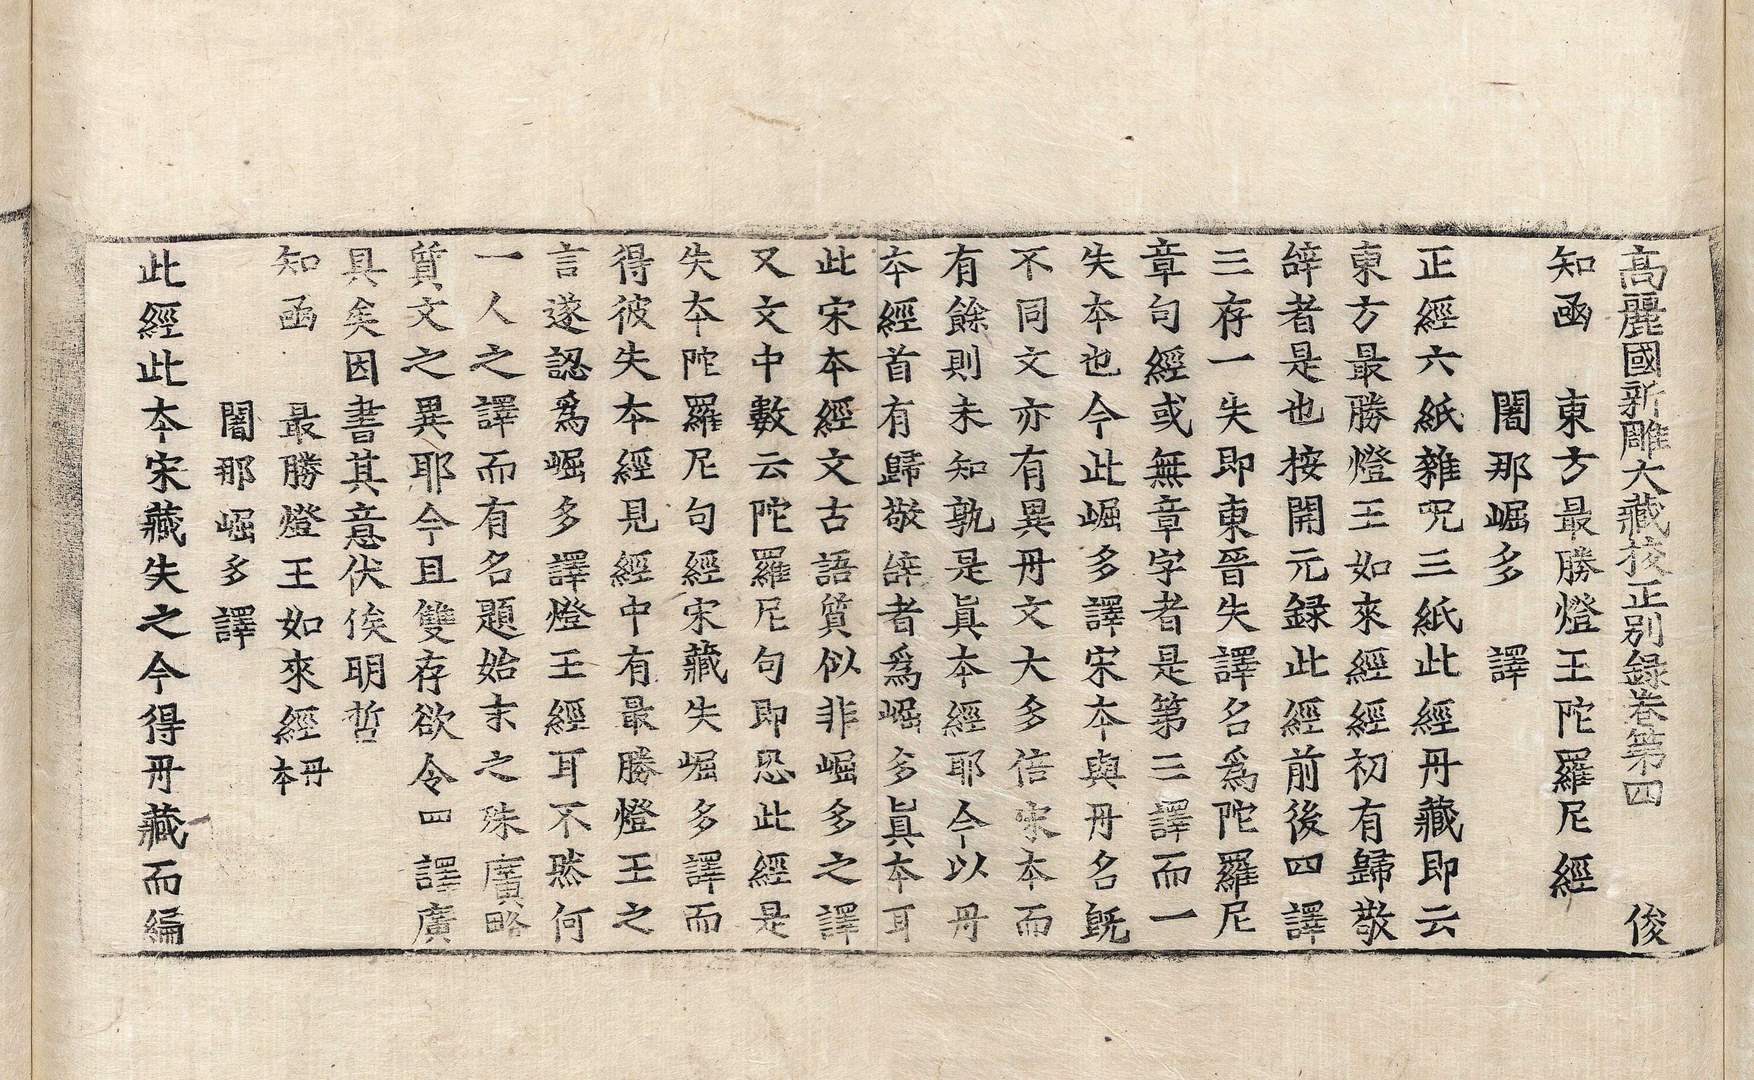 高麗國新雕大藏校正別録卷第四 俊
知函 東方最勝燈王陀羅尼經
闍那崛多 譯
正經六紙雜呪三紙此經丹藏即云
東方最勝燈王如來經經初有歸敬
辝者是也按開元録此經前後四譯
三存一失即東晉失譯名爲陀羅尼
章句經或無章字者是第三譯而一
失本也今此崛多譯宋本與丹名旣
不同文亦有異丹文大多倍宋本而
有餘則未知孰是眞本經耶今以丹
本經首有歸敬辝者爲崛多眞本耳
此宋本經文古語質似非崛多之譯
又文中數云陀羅尼句即恐此經是
失本陀羅尼句經宋藏失崛多譯而
得彼失本經見經中有最勝燈王之
言遂認爲崛多譯燈王經耳不然何
一人之譯而有名題始末之殊廣略
質文之異耶今且雙存欲令四譯廣
具矣因書其意伏俟明哲
知函 最勝燈王如來經丹本
闍那崛多譯
此經此本宋藏失之今得丹藏而編